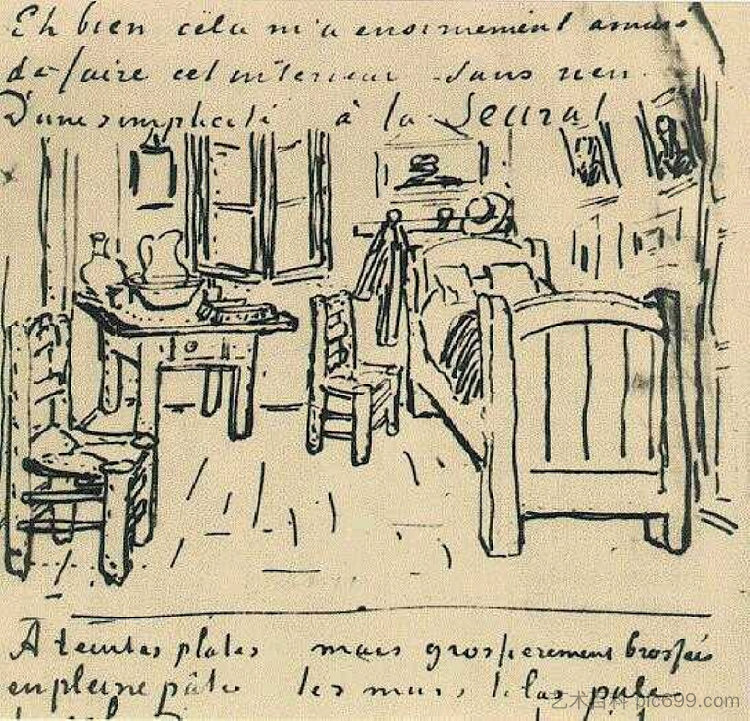 Eh bien cela m'a enormement amusé
de faire cet interieur sans rien.
D'une simplicité à la Seurat
A teintes plates mais grossierement brossées
en pleine pâte les murs lilas pale
艺术百科 pic699.com